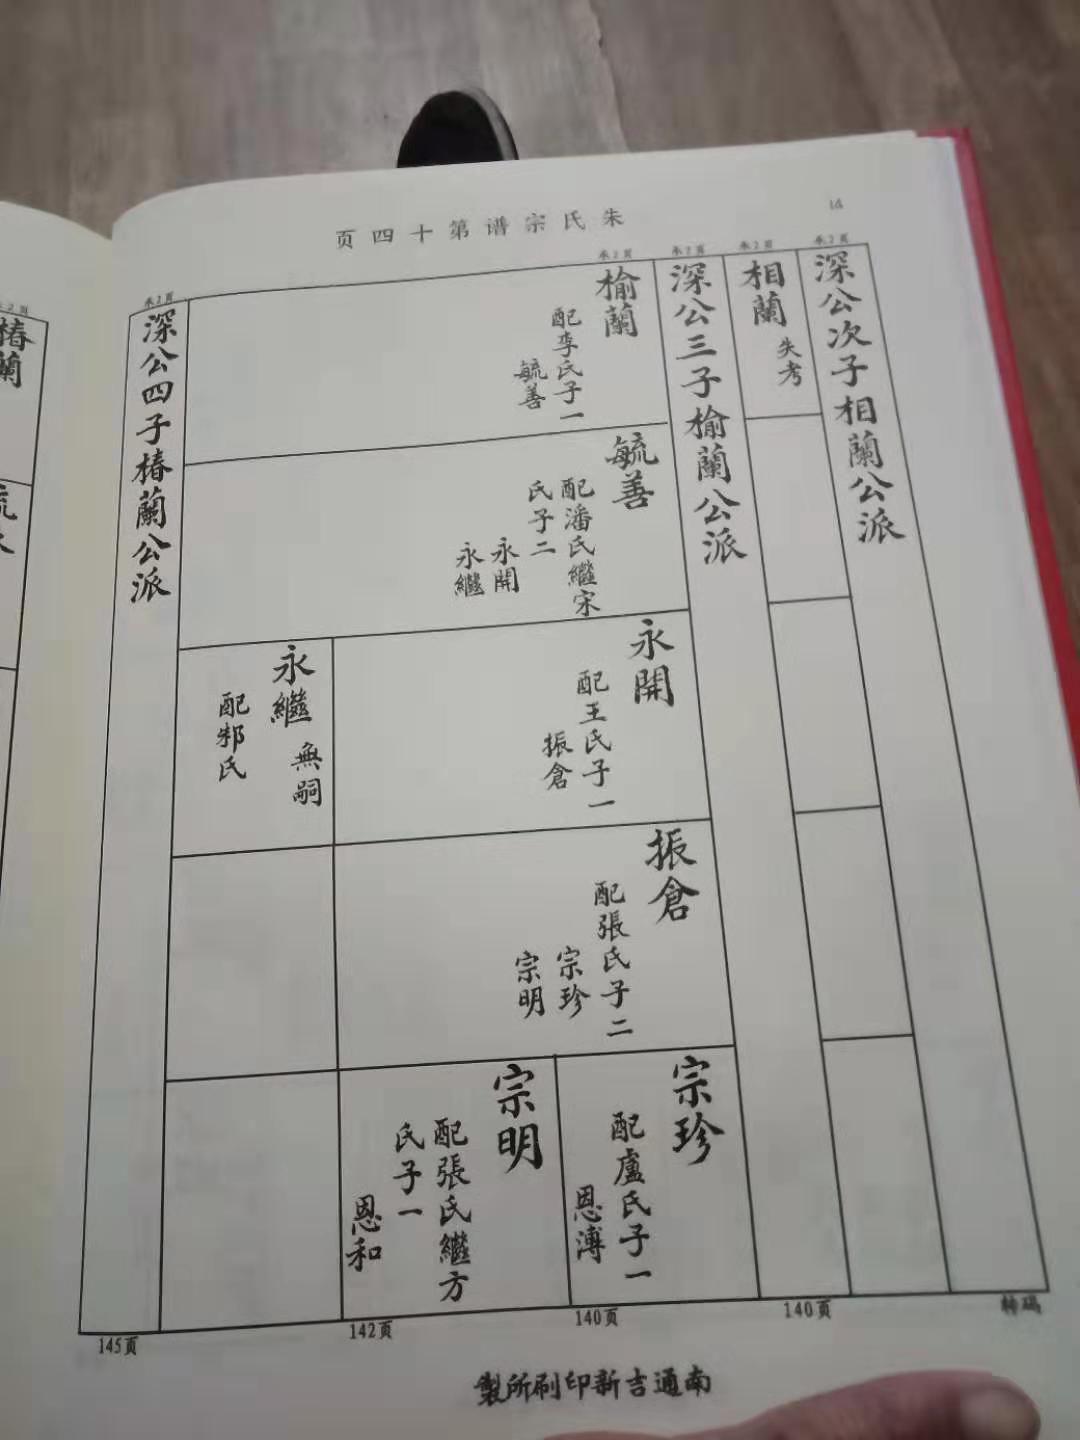 朱氏宗谱第十四页
14
承2页
深公次子相蘭公派
承2页
相蘭
失考
承2页
深公三子榆蘭公派
承2页
榆蘭
配李氏子一
毓善
毓善
配潘氏繼宋
氏子二
永開
永繼
永開
配王氏子一
振倉
永繼
無嗣
配邾氏
振倉
配張氏子二
宗珍
宗明
宗珍
配盧氏子一
恩溥
宗明
配張氏繼方
氏子一
恩和
承2页
深公四子椿蘭公派
承2页
椿蘭
轉碼
140页
140页
142页
145页
南通吉新印刷所製